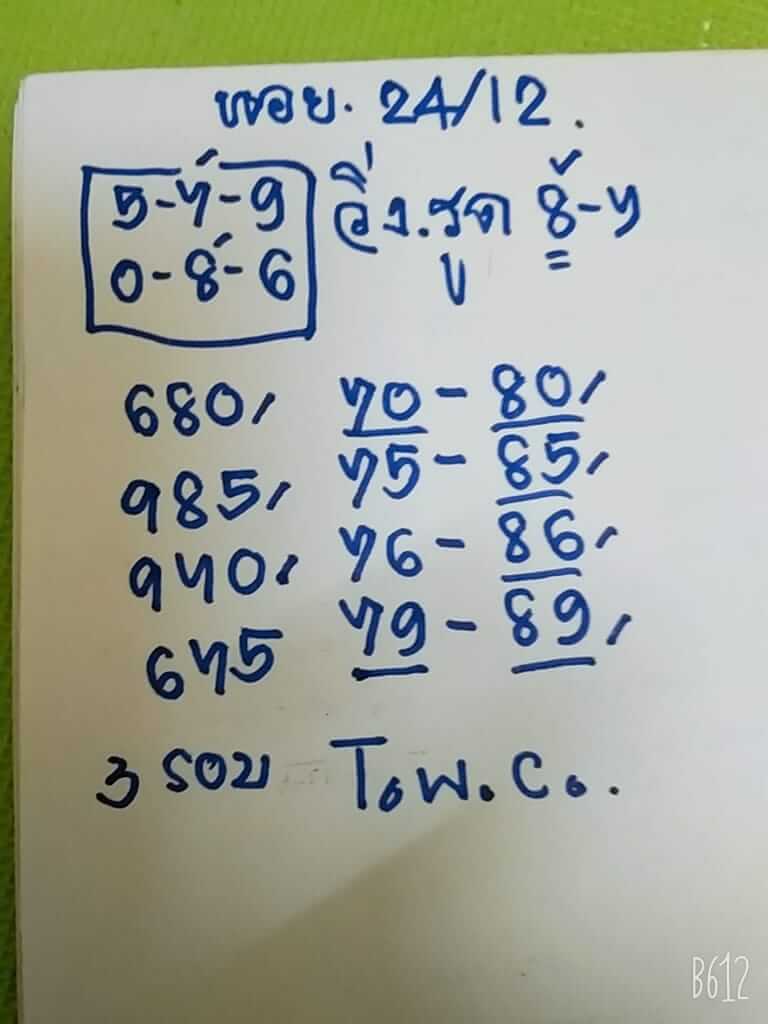 หอย. 24/12.
5-7-9
0-8-6
วิ่ง.รูด 8-7
บ
680, 70-80,
985, 75-85,
970, 76-86,
675 79-89,
3 รอบ T.W.C..
B612